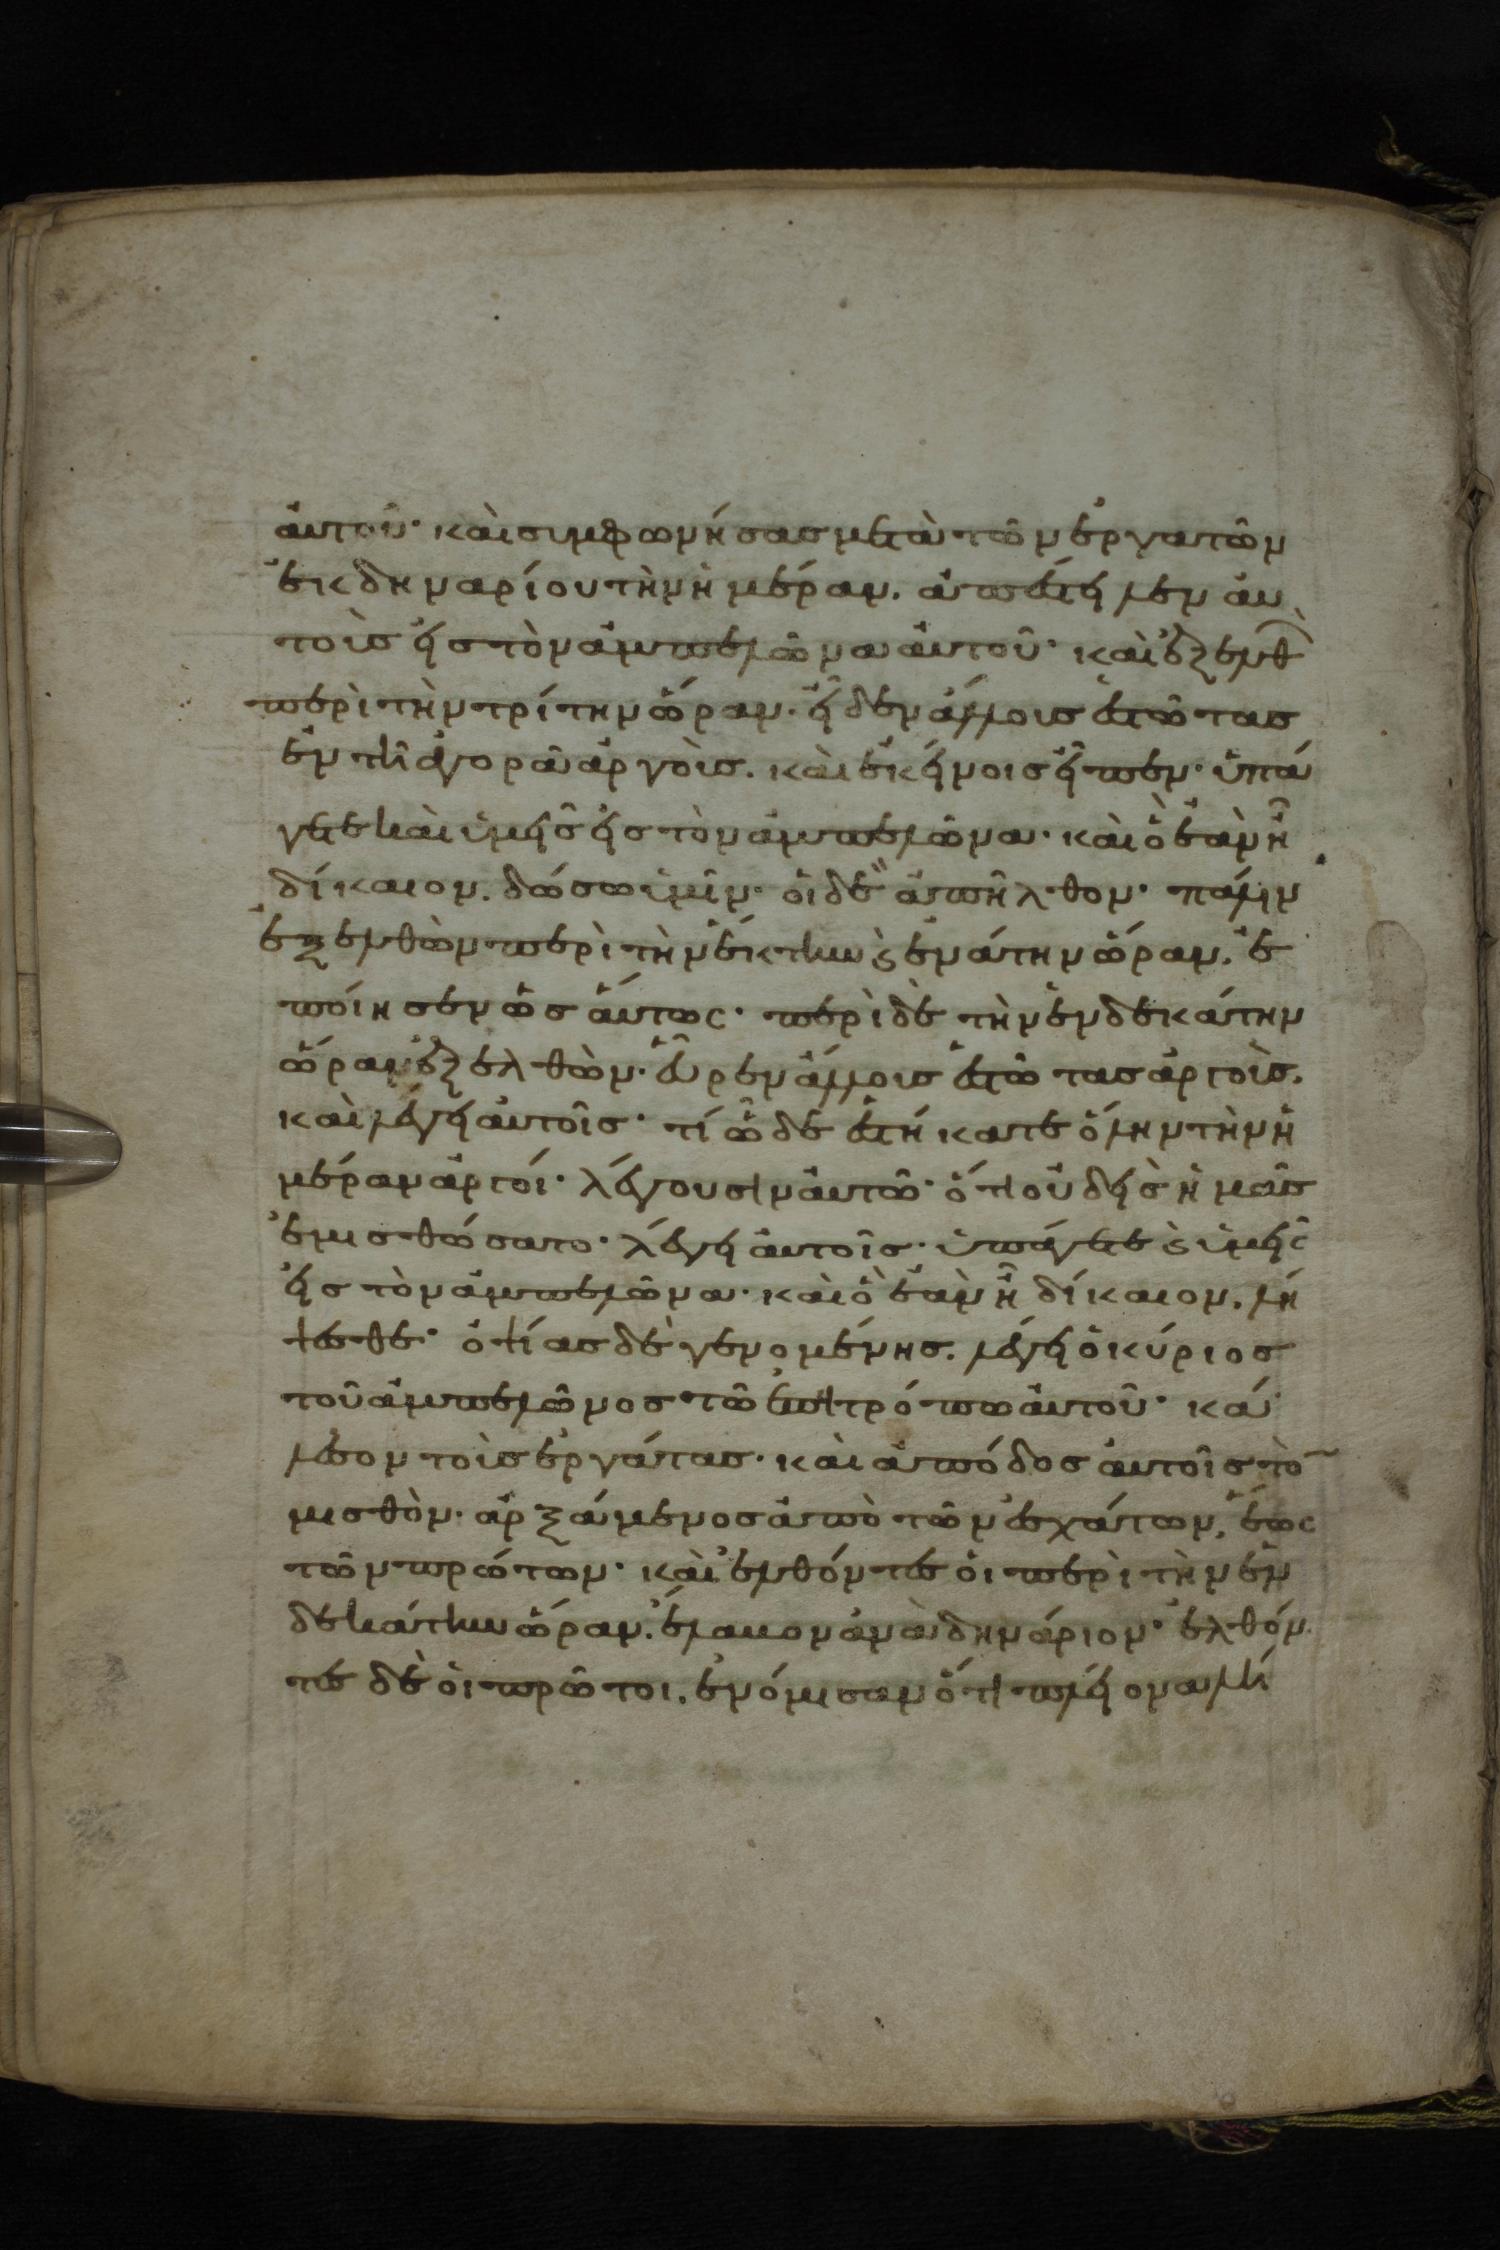 ἀυτοῦ· καὶ συμφωνήσασ μετὰ τῶν ἐργατῶν
ἐκ δηναρίου τὴν ἡμέραν. ἀπέστειλεν ἀυ
τοὺσ εἰσ τὸν ἀμπελῶνα ἀυτοῦ· καὶ ἐξελθ(ὼν)
περὶ τὴν τρίτην ὥραν. εἶδεν ἄλλουσ ἑστῶτασ
ἐν τῆ ἀγορᾶ ἀργοὺσ. καὶ ἐκείνοισ εἶπεν· ὑπά
γετε καὶ ὑμεῖσ εἰσ τὸν ἀμπελῶνα· καὶ ὃ ἐὰν ἦ
δίκαιον. δώσω ὑμῖν· οἱ δὲ ἀπῆλθον· πάλιν
ἐξελθὼν περὶ τὴν ἕκτην ϗ ἐνάτην ὥραν. ἐ
ποίησεν ὡσἄυτως· περὶ δὲ τὴν ἑνδεκάτην
ὥραν ἐξελθὼν· εὗρεν ἄλλουσ ἑστῶτασ ἀργοὺσ.
καὶ λέγει ἀυτοῖσ· τί ὧδε ἑστήκατε ὅλην τὴν ἡ
μέραν ἀργοί· λέγουσιν ἀυτῶ· ὅτι οὐδεὶσ ἡμᾶσ
ἐμισθώσατο· λέγει ἀυτοῖσ· ὑπάγετε ϗ ὑμεῖς
εἰσ τὸν ἀμπελῶνα· καὶ ὃ ἐὰν ἦ δίκαιον. λή
ψεσθε· ὀψίασ δὲ γενομένησ. λέγει ὁ κύριοσ
τοῦ ἀμπελῶνοσ τῶ ἐπιτρόπω ἀυτοῦ· κά
λεσον τοὺσ ἐργάτασ· καὶ ἀπόδοσ ἀυτοῖσ τὸ̅
μισθὸν· ἀρξάμενοσ ἀπὸ τῶν ἐσχάτων, ἕως
τῶν πρώτων· καὶ ἐλθόντεσ ὁι περὶ τὴν ἑν
δεκάτην ὥραν. ἔλαβον ἀνὰ δηνάριον· ἐλθόν
τεσ δὲ ὁι πρῶτοι. ἐνόμισαν ὅτι πλείονα λή